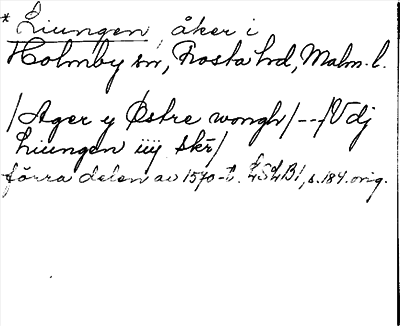 * Liungen, åker i
Holmby sn, Frosta hd, Malm. l.
/Ager y Østre wongh/ --- /Vdj
Liungen iiij skr/
förra delen av 1570-t. LSLB1, s. 184. orig.